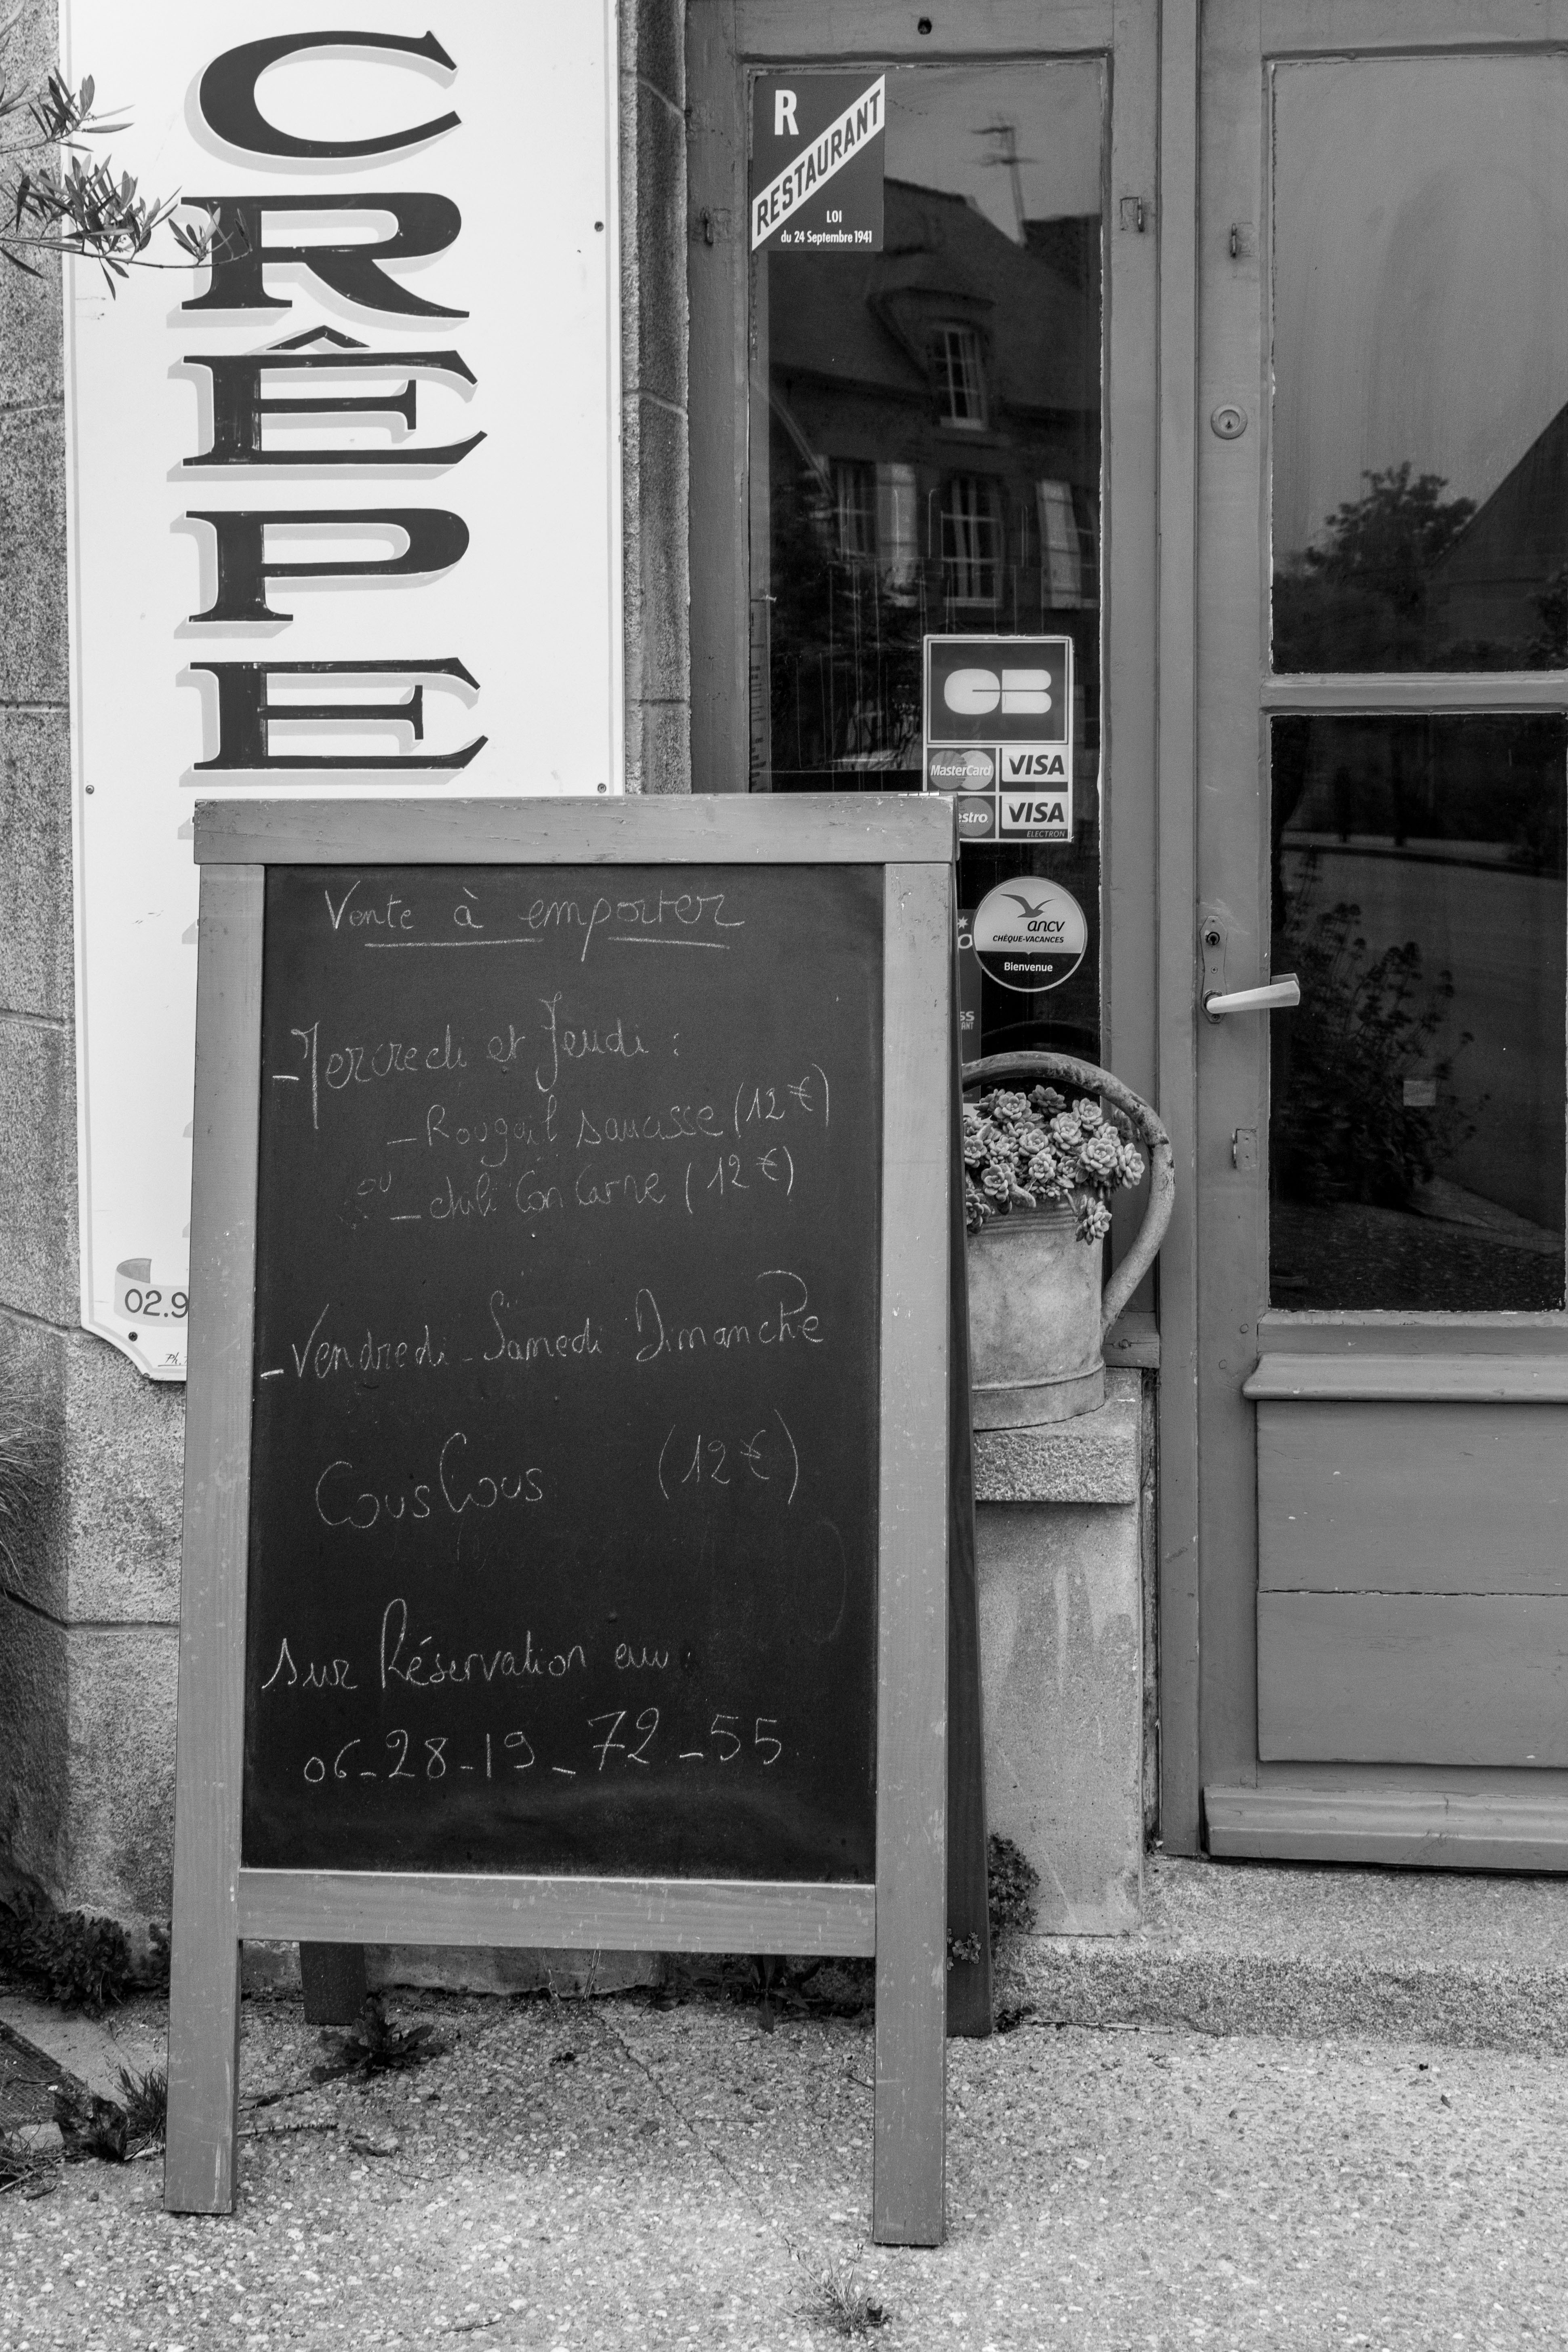 CRÊPE
02.9
Ph.
R
RESTAURANT
LOI
du 24 Septembre 1941
CB
MasterCard VISA
estro VISA
ELECTRON
ancv
CHÈQUE-VACANCES
Bienvenue
Vente à emporter
- Mercredi et Jeudi :
- Rougail saucisse (12 €)
ou - chili Con Carne (12 €)
- Vendredi - Samedi Dimanche
CousCous (12 €)
Sur Réservation au :
06-28-19-72-55